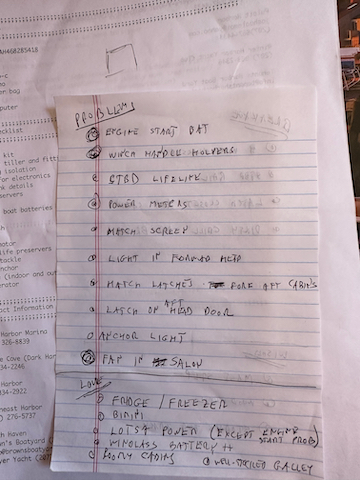 AH460285418
computer
checklist
kit
tiller and fitt
isolation
for electronics
nk details
reservers
boat batteries
life preservers
tackle
anchor
e (indoor and ou
nerator
act Information
Harbor Marina
326-8839
e Cove (Dark Har
34-2246
Harbor
34-2922
heast Harbor
) 276-5737
h Haven
PROBLEMS
ENGINE START BAT
WINCH HANDLE HOLDERS
STBD LIFELINE
POWER METERS
HATCH SCREEN
LIGHT IN FORWARD HEAD
HATCH LATCHES FORE AFT CABINS
LATCH ON AFT HEAD DOOR
ANCHOR LIGHT
FAN IN SALON
LOVE
FRIDGE / FREEZER
BIMINI
LOTSA POWER (EXCEPT ENGINE START PROB)
WINDLASS BATTERY
ROOMY CABINS WELL-STOCKED GALLEY